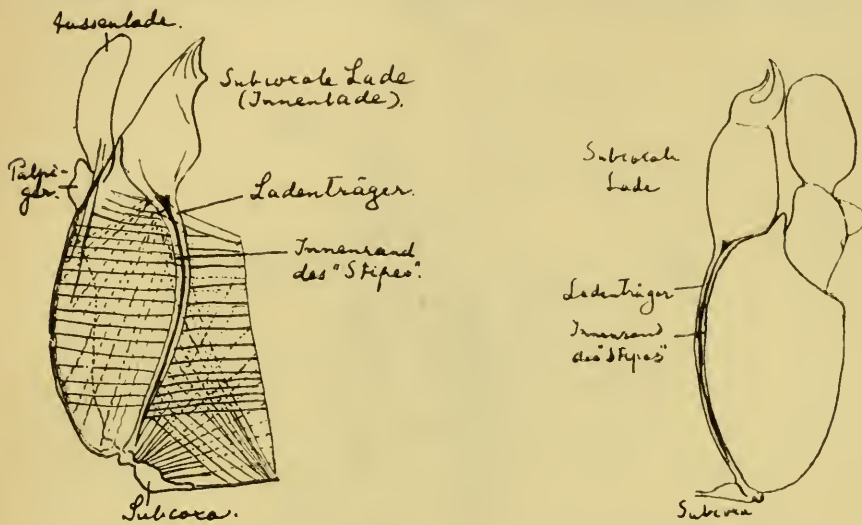 Aussenlade.
Subcoxale Lade
(Innenlade).
Palpi-
ger.
Ladenträger.
Innenrand
des "Stipes".
Subcoxa.
Subcoxale
Lade
Ladenträger
Innenrand
des "Stipes"
Subcoxa